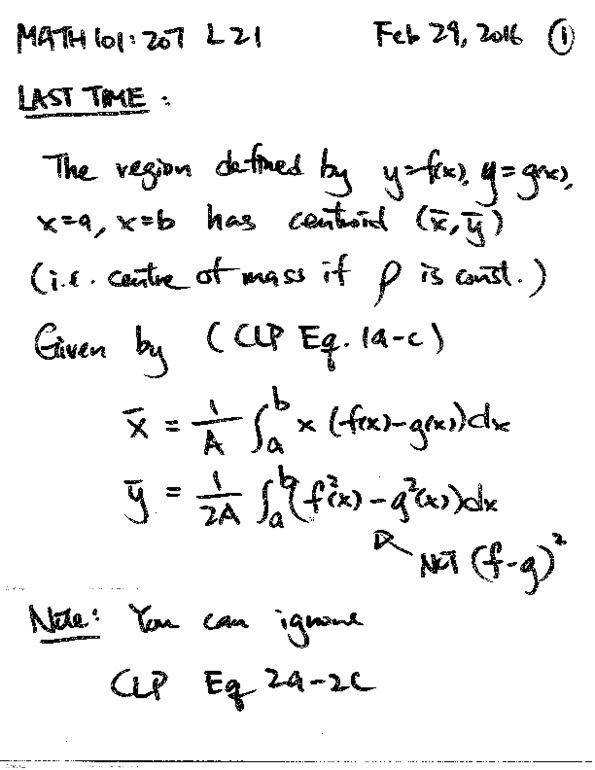 MATH 101:207 L21 Feb 29, 2016 ①
LAST TIME :
The region defined by y=f(x), y=g(x),
x=a, x=b has centroid (x̄, ȳ)
(i.e. centre of mass if ρ is const.)
Given by (CLP Eq. 1a-c)
x̄ = 1/A ∫ₐᵇ x (f(x)-g(x))dx
ȳ = 1/2A ∫ₐᵇ (f²(x) - g²(x))dx
NOT (f-g)²
Note: You can ignore
CLP Eq 2a-2c